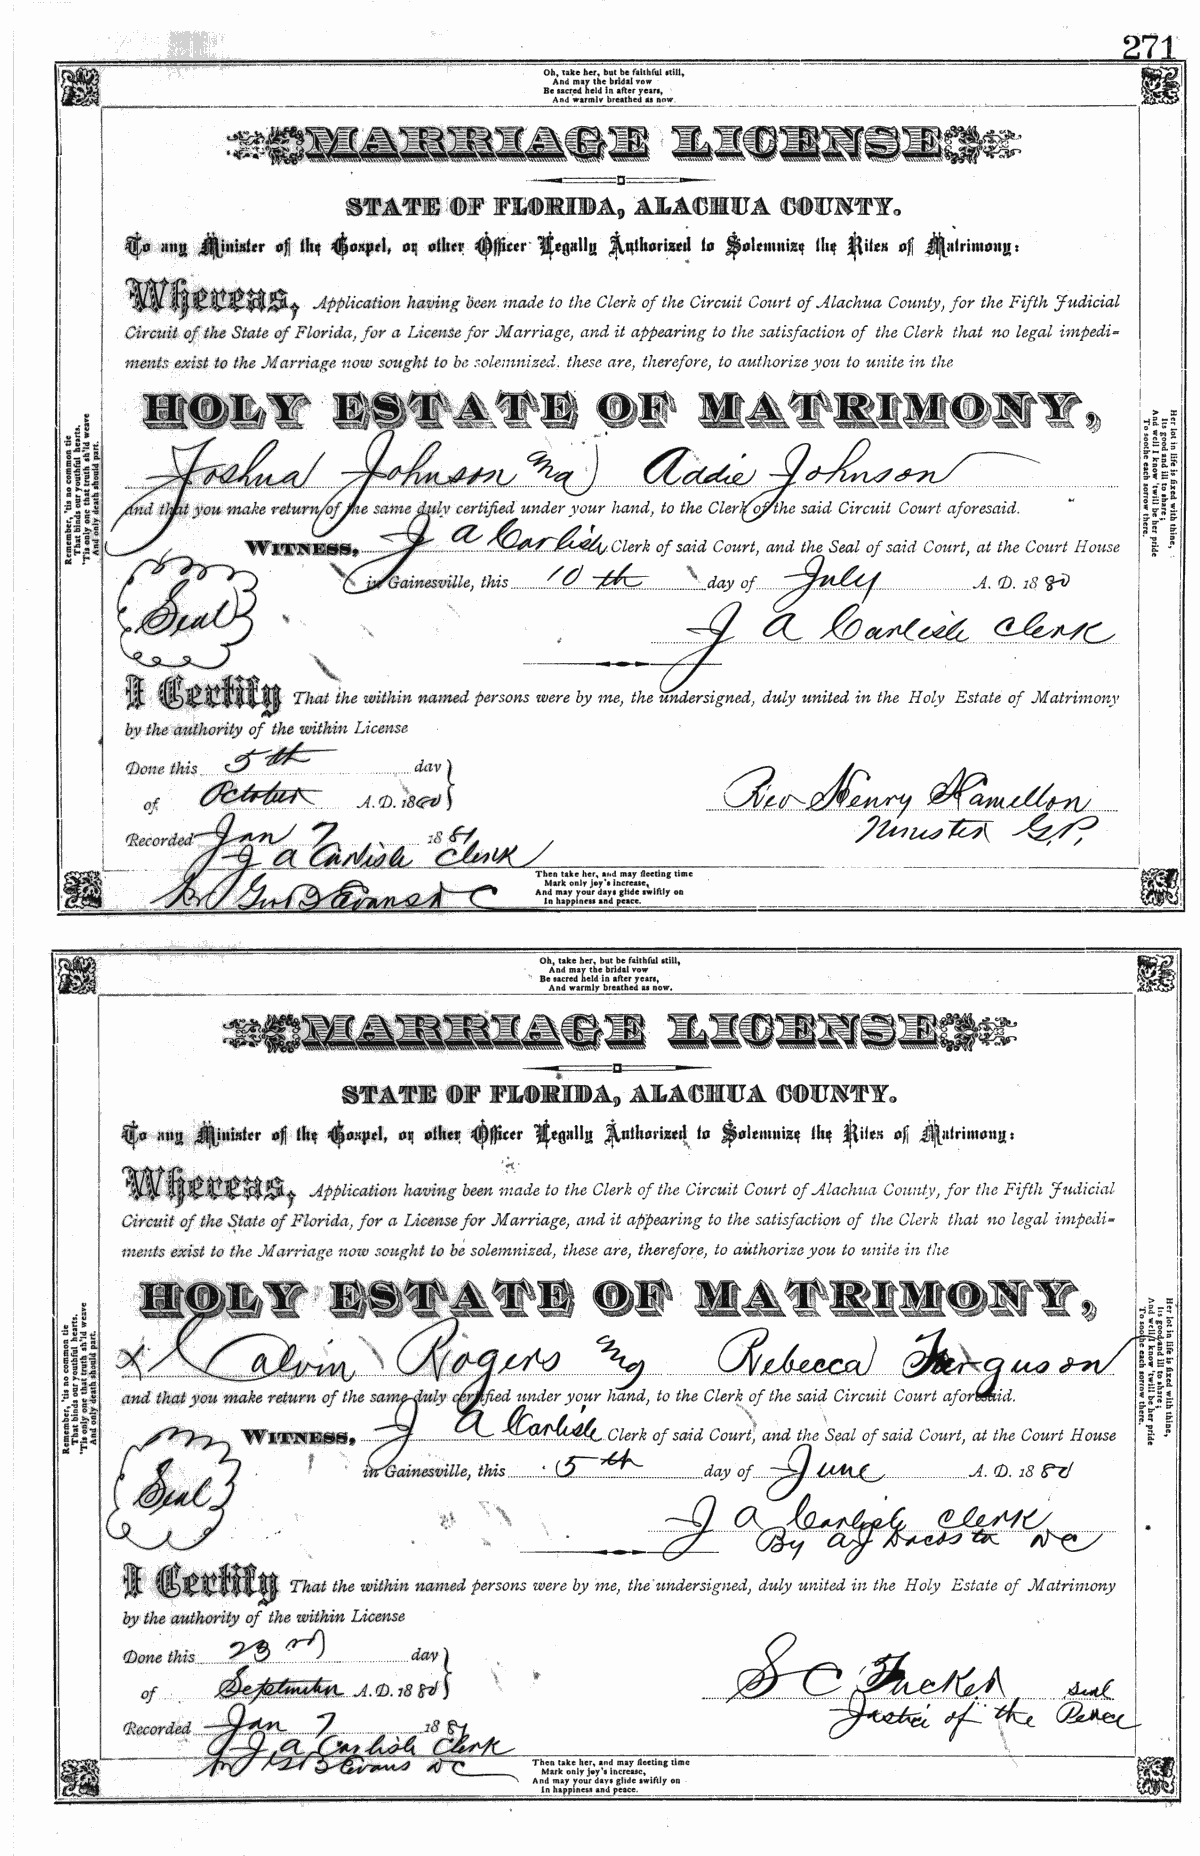 271
Oh, take her, but be faithful still,
And may the bridal vow
Be sacred held in after years,
And warmly breathed as now.
MARRIAGE LICENSE
STATE OF FLORIDA, ALACHUA COUNTY.
To any Minister of the Gospel, or other Officer Legally Authorized to Solemnize the Rites of Matrimony:
Whereas, Application having been made to the Clerk of the Circuit Court of Alachua County, for the Fifth Judicial
Circuit of the State of Florida, for a License for Marriage, and it appearing to the satisfaction of the Clerk that no legal impedi-
ments exist to the Marriage now sought to be solemnized, these are, therefore, to authorize you to unite in the
HOLY ESTATE OF MATRIMONY,
Joshua Johnson and Addie Johnson
and that you make return of the same duly certified under your hand, to the Clerk of the said Circuit Court aforesaid.
WITNESS, J A Carlisle Clerk of said Court, and the Seal of said Court, at the Court House
in Gainesville, this 10th day of July A. D. 1880
Seal
J A Carlisle Clerk
I Certify That the within named persons were by me, the undersigned, duly united in the Holy Estate of Matrimony
by the authority of the within License
Done this 5th day
of October A. D. 1880
Rev Henry Hamelton
Minister G.P.
Recorded Jan 7 1881
J A Carlisle Clerk
Evans D C
Remember, 'tis no common tie
That binds our youthful hearts.
'Tis only one that truth sh'ld weave
And only death should part.
Her lot in life is fixed with thine,
Its good and ill to share;
And well I know 'twill be her pride
To soothe each sorrow there.
Then take her, and may fleeting time
Mark only joy's increase,
And may your days glide swiftly on
In happiness and peace.
Oh, take her, but be faithful still,
And may the bridal vow
Be sacred held in after years,
And warmly breathed as now.
MARRIAGE LICENSE
STATE OF FLORIDA, ALACHUA COUNTY.
To any Minister of the Gospel, or other Officer Legally Authorized to Solemnize the Rites of Matrimony:
Whereas, Application having been made to the Clerk of the Circuit Court of Alachua County, for the Fifth Judicial
Circuit of the State of Florida, for a License for Marriage, and it appearing to the satisfaction of the Clerk that no legal impedi-
ments exist to the Marriage now sought to be solemnized, these are, therefore, to authorize you to unite in the
HOLY ESTATE OF MATRIMONY,
x Calvin Rogers and Rebecca Furguson
and that you make return of the same duly certified under your hand, to the Clerk of the said Circuit Court aforesaid.
WITNESS, J A Carlisle Clerk of said Court, and the Seal of said Court, at the Court House
in Gainesville, this 5th day of June A. D. 1880
Seal
J A Carlisle Clerk
By A J Dacosta D C
I Certify That the within named persons were by me, the undersigned, duly united in the Holy Estate of Matrimony
by the authority of the within License
Done this 23rd day
of September A. D. 1880
S C Tucker Seal
Justice of the Peace
Recorded Jan 7 1881
J A Carlisle Clerk
Evans D C
Remember, 'tis no common tie
That binds our youthful hearts.
'Tis only one that truth sh'ld weave
And only death should part.
Her lot in life is fixed with thine,
Its good and ill to share;
And well I know 'twill be her pride
To soothe each sorrow there.
Then take her, and may fleeting time
Mark only joy's increase,
And may your days glide swiftly on
In happiness and peace.